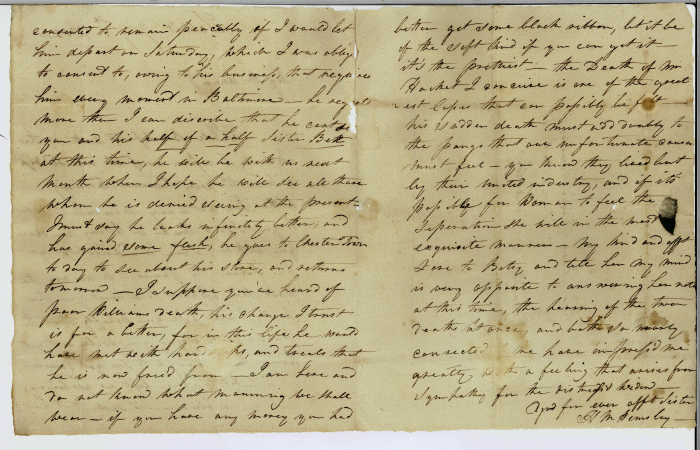 consented to remain peaceably, if I would let
him depart on Saturday, which I was oblig
to consent to, owing to his business, that requires
him every moment in Baltimore – he regrets
more then I can discribe that he cant see
you and his half of a half Sister Bett
at this time, he will be with us next
month when I hope he will see all those
whom he is denied seeing at the present
I must say he looks infinitely better, and
has gained some flesh, he goes to Chestertown
to day to see about his store, and returns
tomorrow – I suppose you've heard of
poor Williams death, his change I trust
is for a better, for in this life he would
have met with hard ks, and treats that
he is now freed from – I am here and
do not know what mourning we shall
wear – if you have any money you had
better get some black ribbon, let it be
of the soft kind if you can get it
it's the prettiest – the Death of Mr
Hacket I conceive is one of the great
est losses that can possibly be felt –
his sudden death must add doubly to
the pangs that our unfortunate cousin
must feel – you know they lived but
by their united industry, and if its
possible for Woman to feel the
Seperation she will in the most
exquisite manner – My kind and afft
Love to Betsy and tell her my mind
is very opposite to answering her note
at this time, the hearing of the two
deaths at once, and both so nearly
connected me have impressed me
greatly, with a feeling that arises from
Sympathy for the distress'd widow –
Yrs for ever afft Sister
M Hemsley